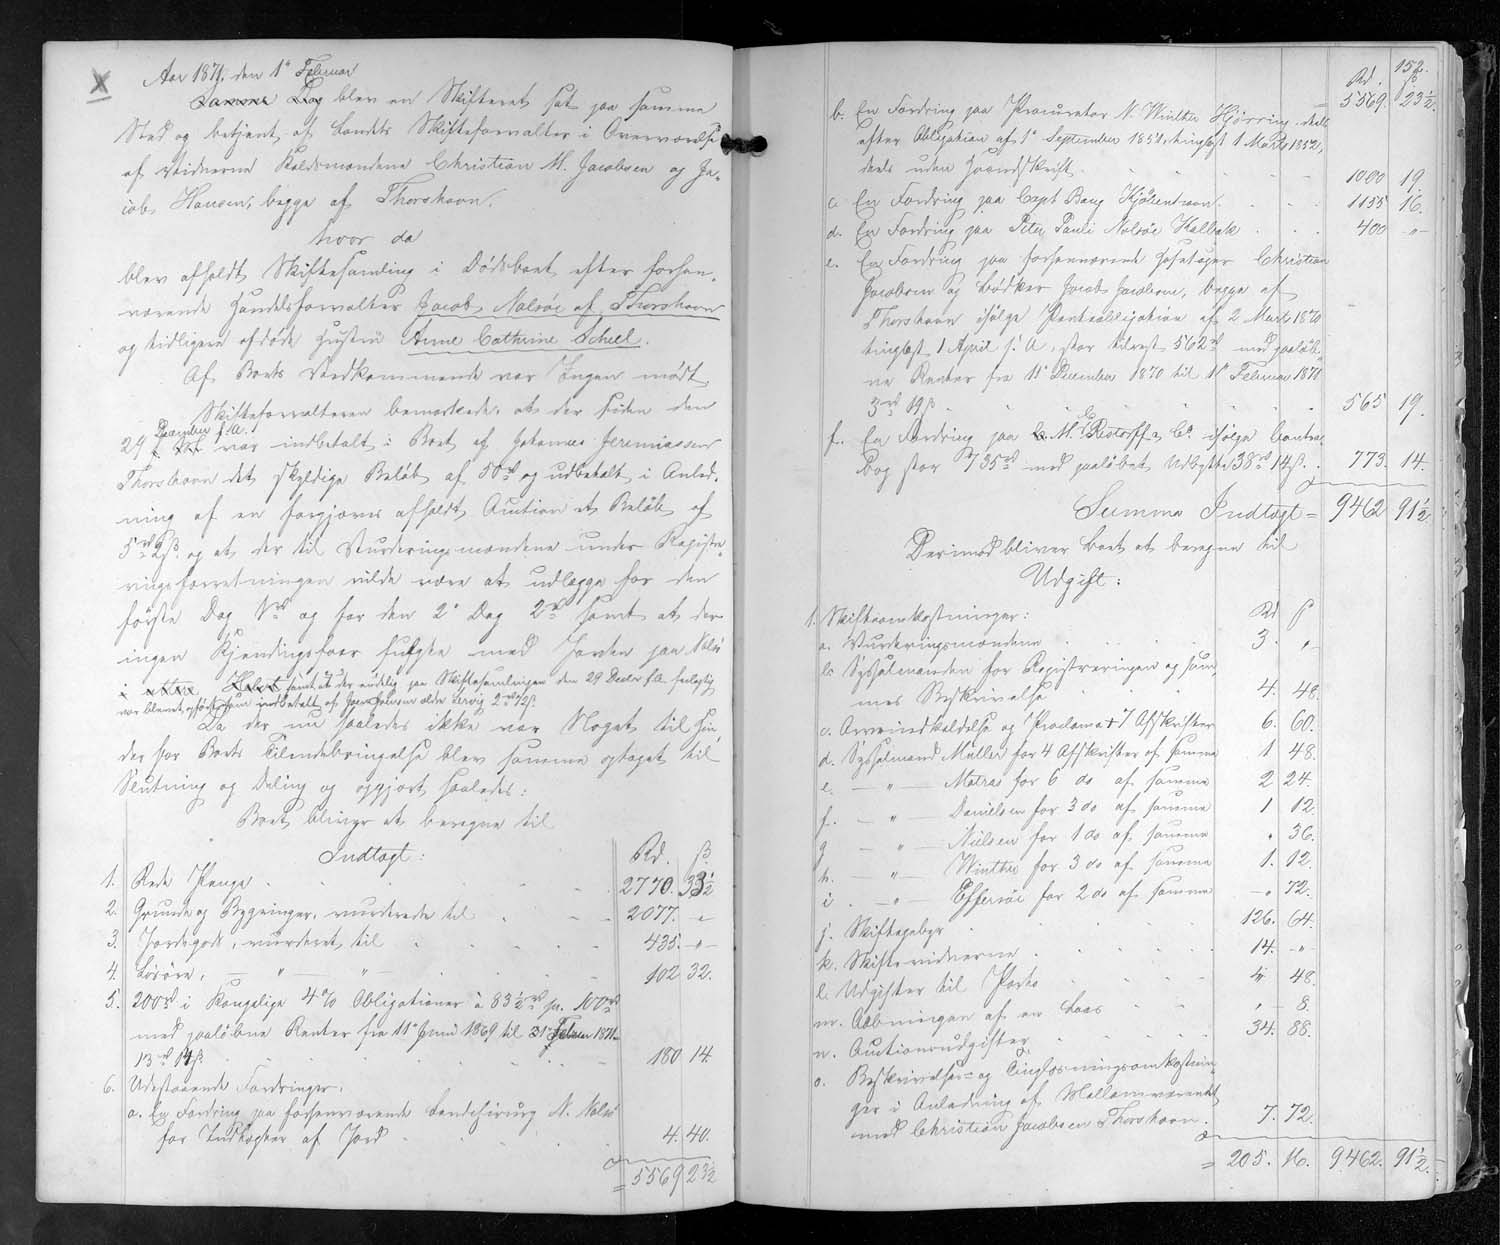 Aar 1871. den 1ste Februar
Samme Dag blev en Skifteret sat paa samme
Sted og betjent af Landets Skifteforvalter i Overværelse
af Vidnerne Kuldsmændene Christian M. Jacobsen og Ja-
cob Hansen, begge af Thorshavn.
hvor da
blev afholdt Skiftesamling i Dødsboet efter forhen-
værende Handelsforvalter Jacob Nolsöe af Thorshavn
og tidligere afdöde Hustru Anne Cathrine Scheel.
Af Boets Vedkommende var Ingen mødt.
Skifteforvalteren bemærkede, at der siden den
December f. A.
29 var indbetalt i Boet af Johannes Jeremiassen
Thorshavn det skyldige Belöb af 50 rd og udbetalt i Anled-
ning af en forgjæves afholdt Auction et Beløb af
5 rd 9 ß. og at der til Vurderingsmændene under Registre-
ringsforretningen vilde være at udlægge for den
förste Dag 1 rd og for den 2den Dag 2 rd samt at der
ingen Kjendingsfaar fulgte med Jorden paa Nolsö
samt at der endelig paa Skiftesamlingen den 29 Decbr f. A. feilagtig
var blevet opført som indbetalt af 2 rd 72 ß.
Da der nu saaledes ikke var Noget til Hin-
der for Boets Tilendebringelse blev samme optaget til
Slutning og Deling og opgjort saaledes:
Boet bliver at beregne til
Indtægt: Rd. ß.
1. Rede Penge 2770. 33½
2. Grunde og Bygninger, vurderede til 2077. "
3. Jordegods, vurderet til 435. "
4. Løsöre, — " — " — 102 32.
5. 200 rd i Kongelige 4% Obligationer à 83½ rd pr. 100 rd
med paaløbne Renter fra 11te Juni 1869 til 1 Februar 1871
13 rd 14 ß 180 14.
6. Udestaaende Fordringer:
a. En Fordring paa forhenværende Landchirurg N. Nolsö
for Indtægter af Jord 4. 40.
= 5569 23½
152.
Rd. ß
= 5569. 23½.
b. En Fordring paa Procurator N. Winther Hjörring, deels
efter Obligation af 1ste September 1851, tinglæst 1 Marts 1852,
deels uden Haandskrift 1000 19.
c. En Fordring paa Capt Bang Kjöbenhavn. 1155 16.
d. En Fordring paa Peter Pauli Nolsöe Kalbak 400 — " —
e. En Fordring paa forhenværende Christian
Jacobsen og Bödker Jacob Jacobsen, begge af
Thorshavn ifölge Panteobligation af 2 Marts 1870
tinglæst 1 April s. A, stor tilrest 562 rd med paalöb-
ne Renter fra 11te December 1870 til 1ste Februar 1871
3 rd 19 ß 565 19.
f. En Fordring paa M. C. Restorff & Co. ifölge Contra-
Bog stor 735 rd med paalöbet Udbytte 38 rd 14 ß. 773. 14.
Summa Indtægt = 9462 91½.
Derimod bliver Boet at beregne til
Udgift:
1. Skifteomkostninger: Rd ß
a. Vurderingsmændene 3. "
b. Sysselmanden for Registreringen og sam-
mes Beskrivelse 4. 48.
c. Arveindkaldelse og Proclama + 7 Afskrifter 6. 60.
d. Sysselmand Müller for 4 Afskrifter af samme 1 48.
e. — " — Matras for 6 do af samme 2 24.
f. — " — Danielsen for 3 do af samme 1 12.
g — " — Nielsen for 1 do af samme " 36.
h. — " — Winther for 3 do af samme 1. 12.
i. — " — Effersöe for 2 do af samme — " 72.
j. Skiftegebyr 126. 64.
k. Skiftevidnerne 14. — " —
l. Udgifter til Porto " 48.
m. Aabningen af en Laas " — 8.
n. Auctionsudgifter 34. 88.
o. Beskrivelses- og Tinglæsningsomkostnin-
ger i Anledning af Mellemværendet
med Christian Jacobsen Thorshavn. 7. 72.
= 205. 16. 9462. 91½.